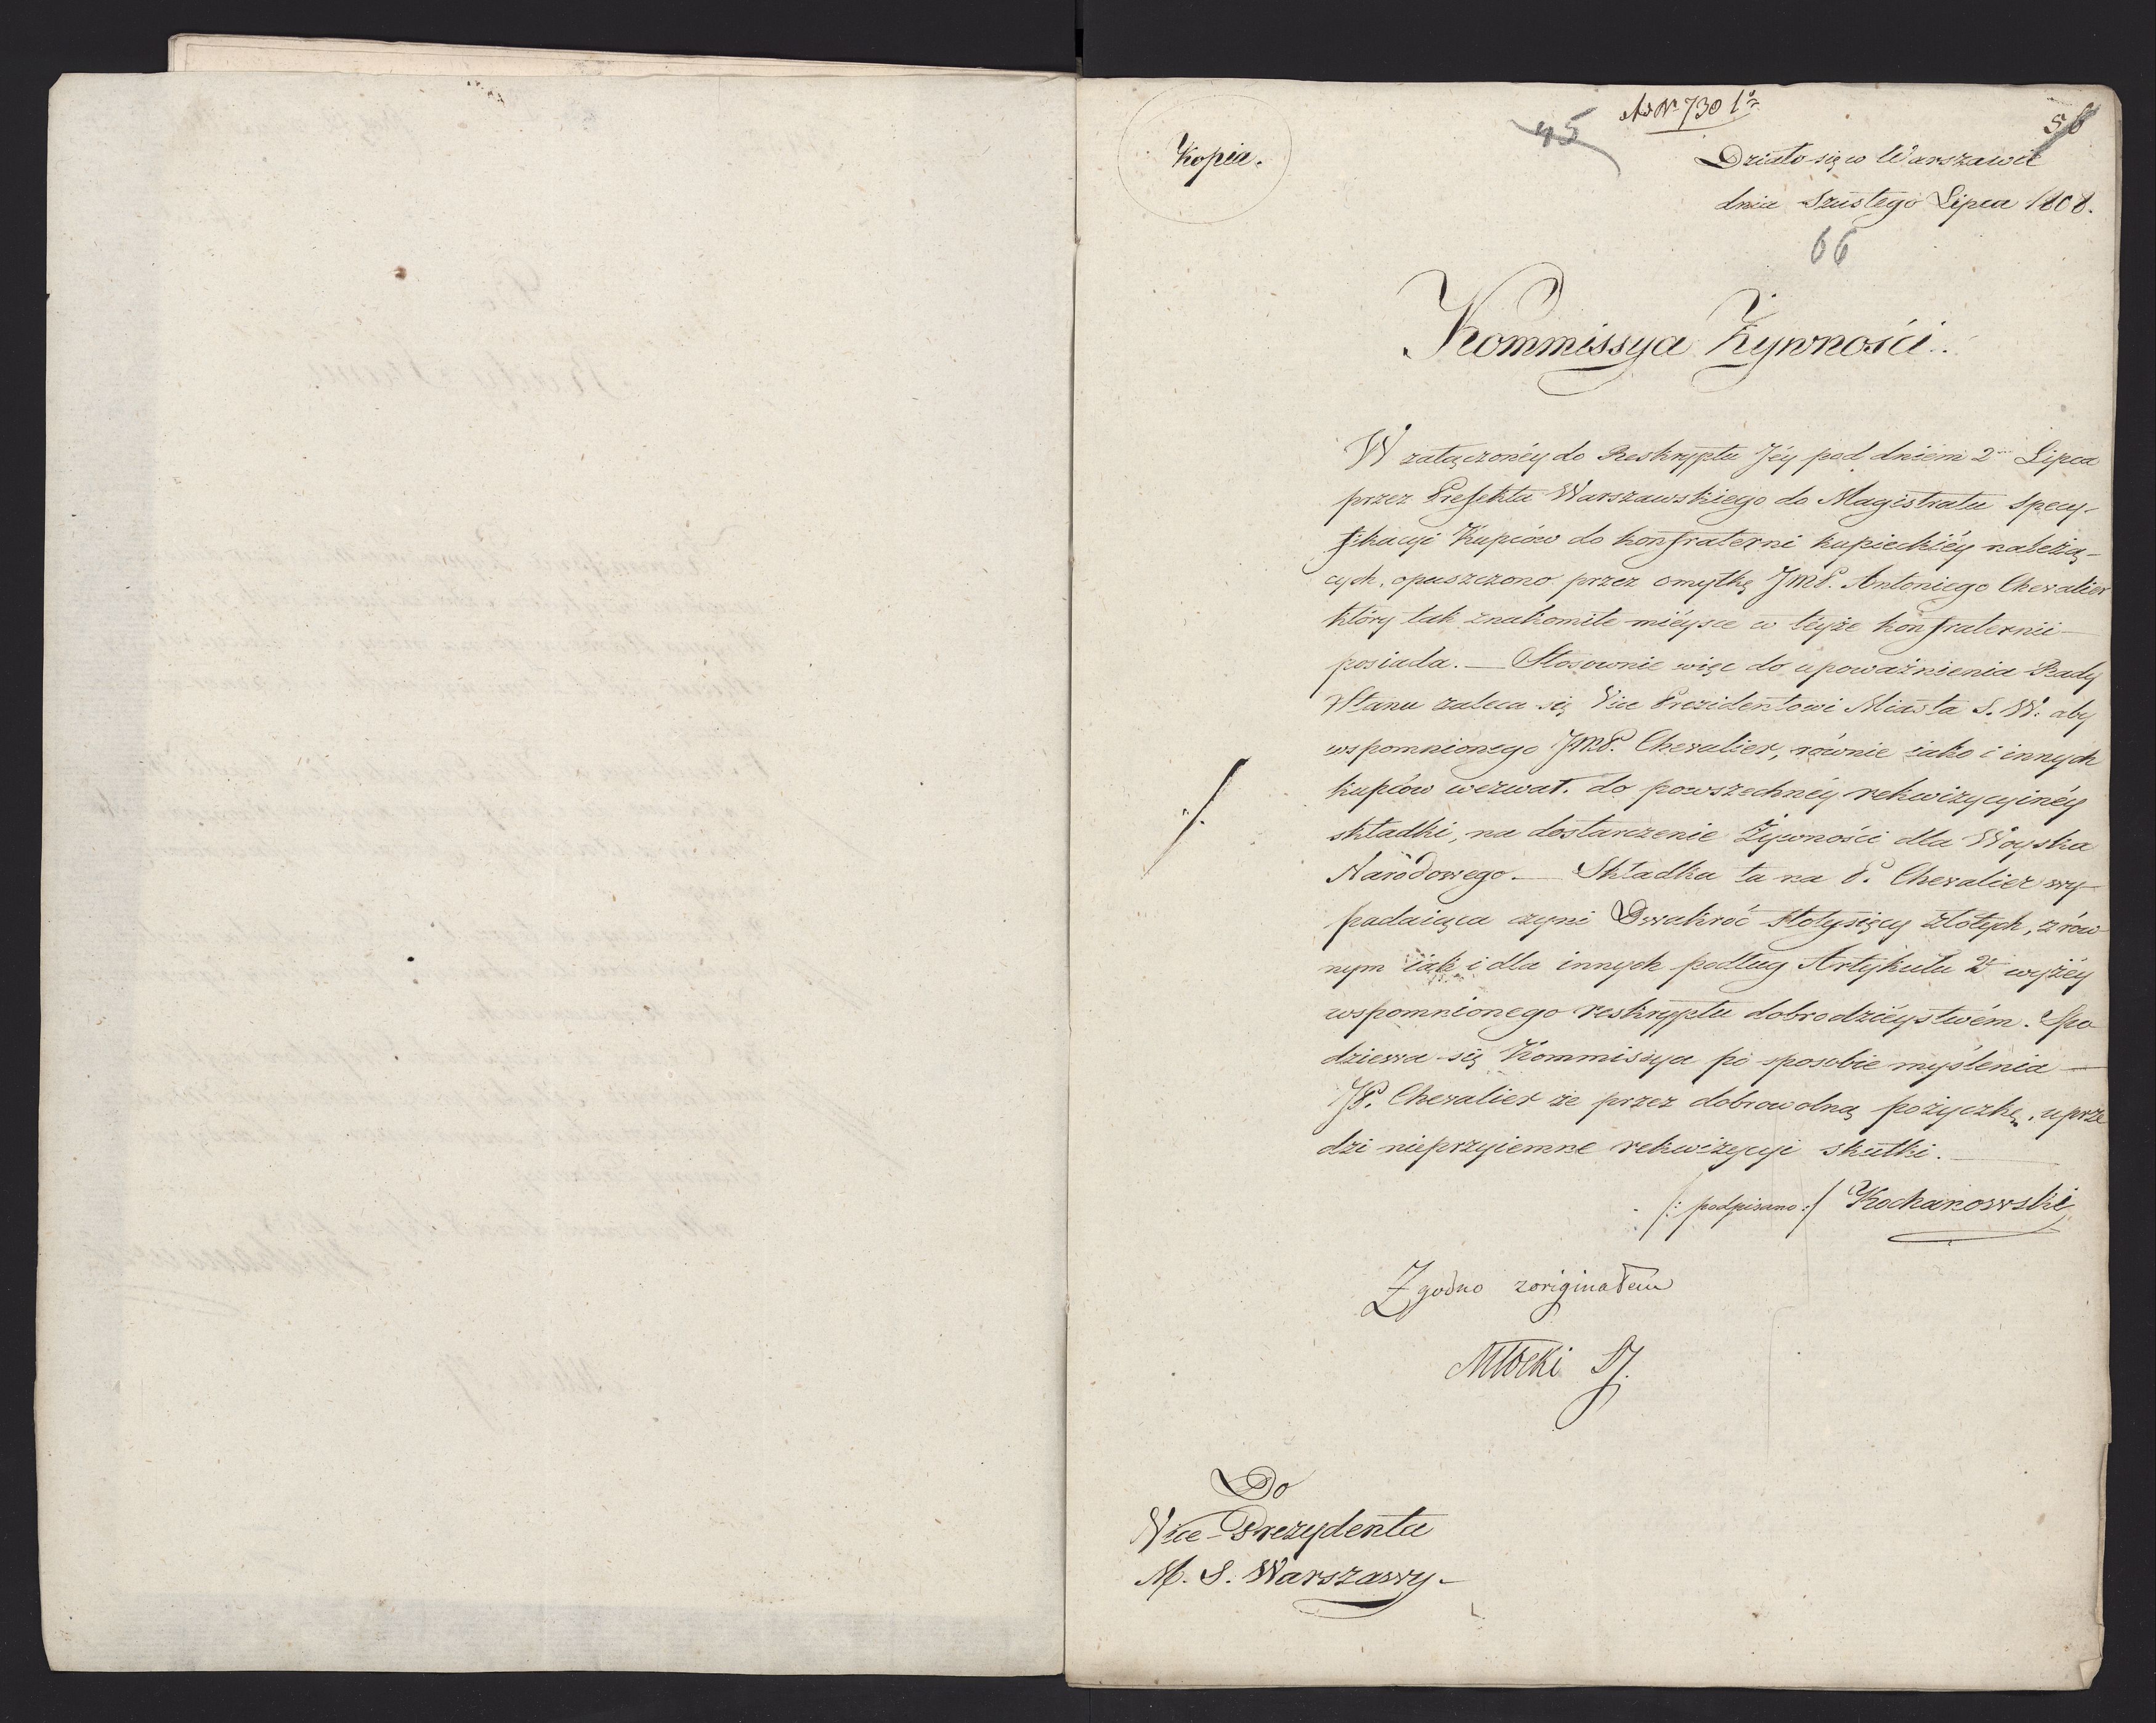 Ad Nr 730
45
56
Kopia.
Działo się w Warszawie
dnia Szustego Lipca 1808.
66
Kommissya Żywności.
W załączonéy do Reskryptu Jéy pod dniem 2 Lipca
przez Prefekta Warszawskiego do Magistratu Specy-
fikacyi Kupców do konfraterni kupieckiéy należą-
cych, opuszczono przez omyłkę JMP. Antoniego Chevalier
który tak znakomite miéysce w téyże konfraternii
posiada. — Stosownie więc do upoważnienia Rady
Stanu zaleca się Vice Prezidentowi Miasta S. W. aby
wspomnionego JMP. Chevalier, równie iako i innych
kupców wezwał. do powszechnéy rekwizycyinéy
składki, na dostarczenie Żywności dla Woyska
Narodowego. — Składka ta na P. Chevalier wy-
padaiąca czyni Dwakroć stotysięcy złotych, z rów-
nym iak i dla innych podług Artykułu 2 wyżéy
wspomnionego reskryptu dobrodziéystwém. Spo
dziewa się Kommissya po sposobie myślenia —
JP. Chevalier że przez dobrowolną pożyczkę, uprze
dzi nieprzyiemne rekwizycyi skutki. —
/: podpisano :/ Kochanowski
Zgodno z originałem
Młocki
Do
Vice-Prezydenta
M. S. Warszawy-